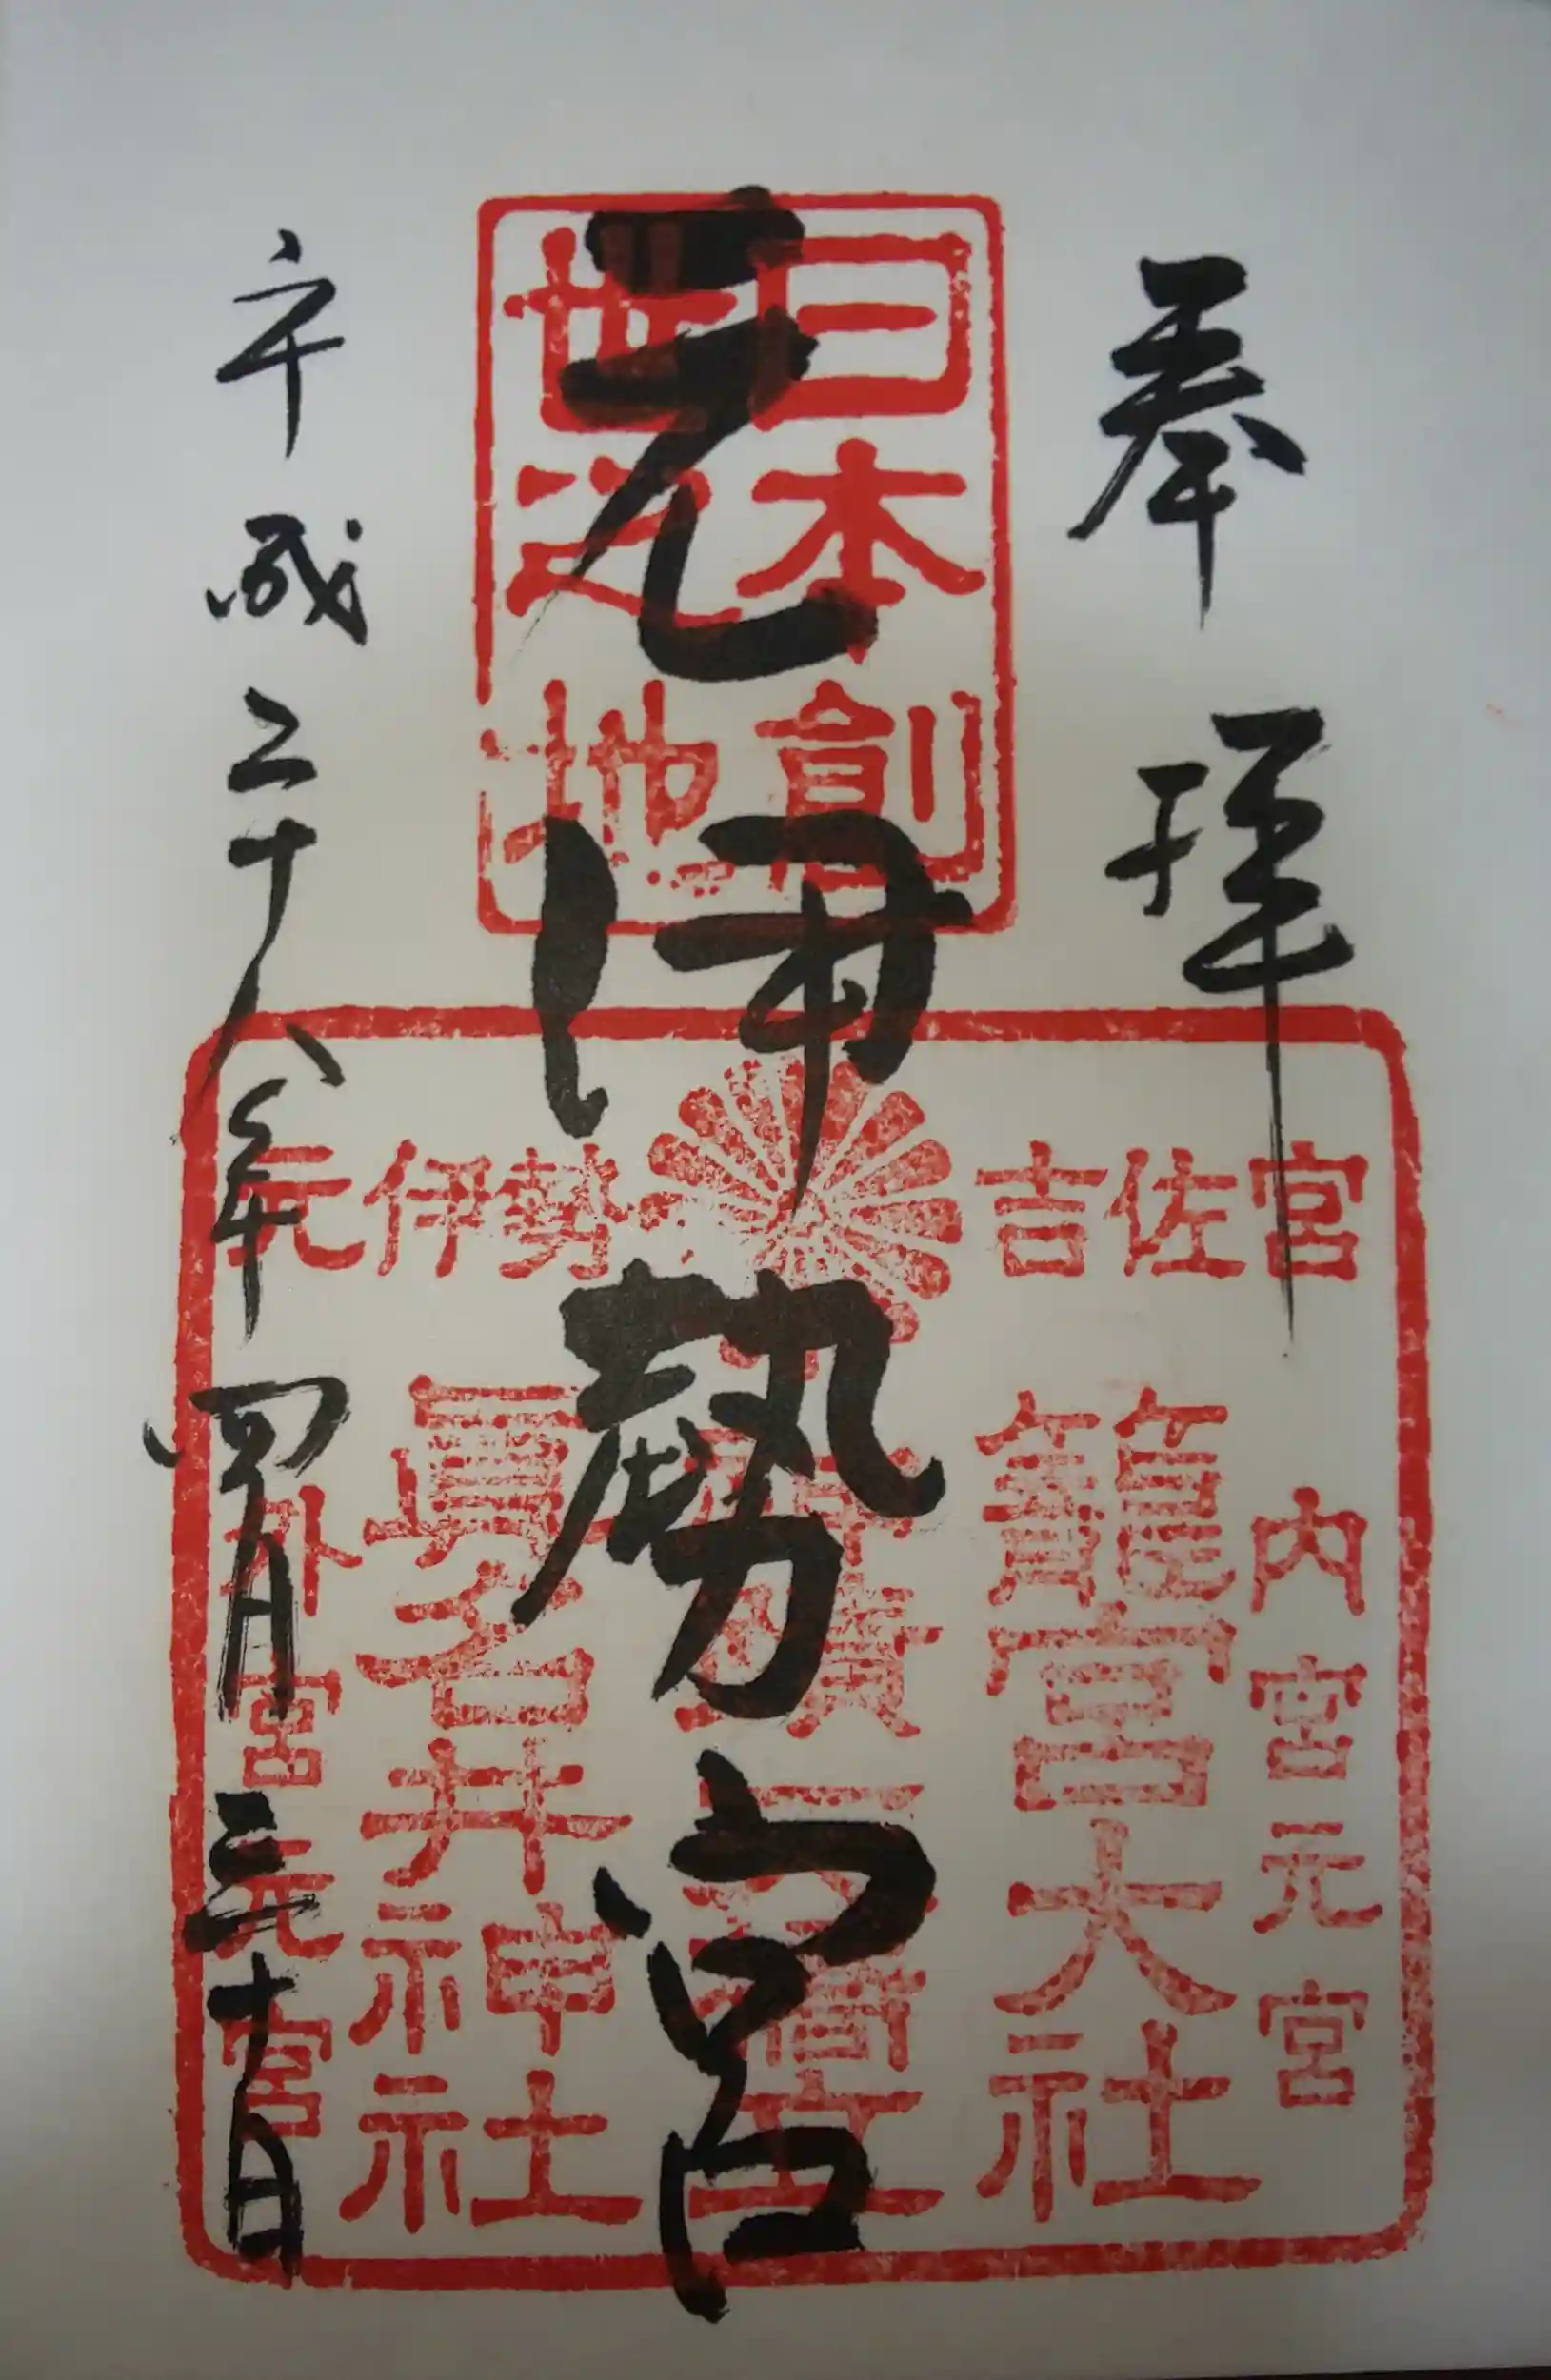 奉拝
日本創
世之地
元伊勢宮
平成二十八年四月三十日
元伊勢
吉佐宮
内宮元宮
籠宮大社
眞名井神社
外宮元宮